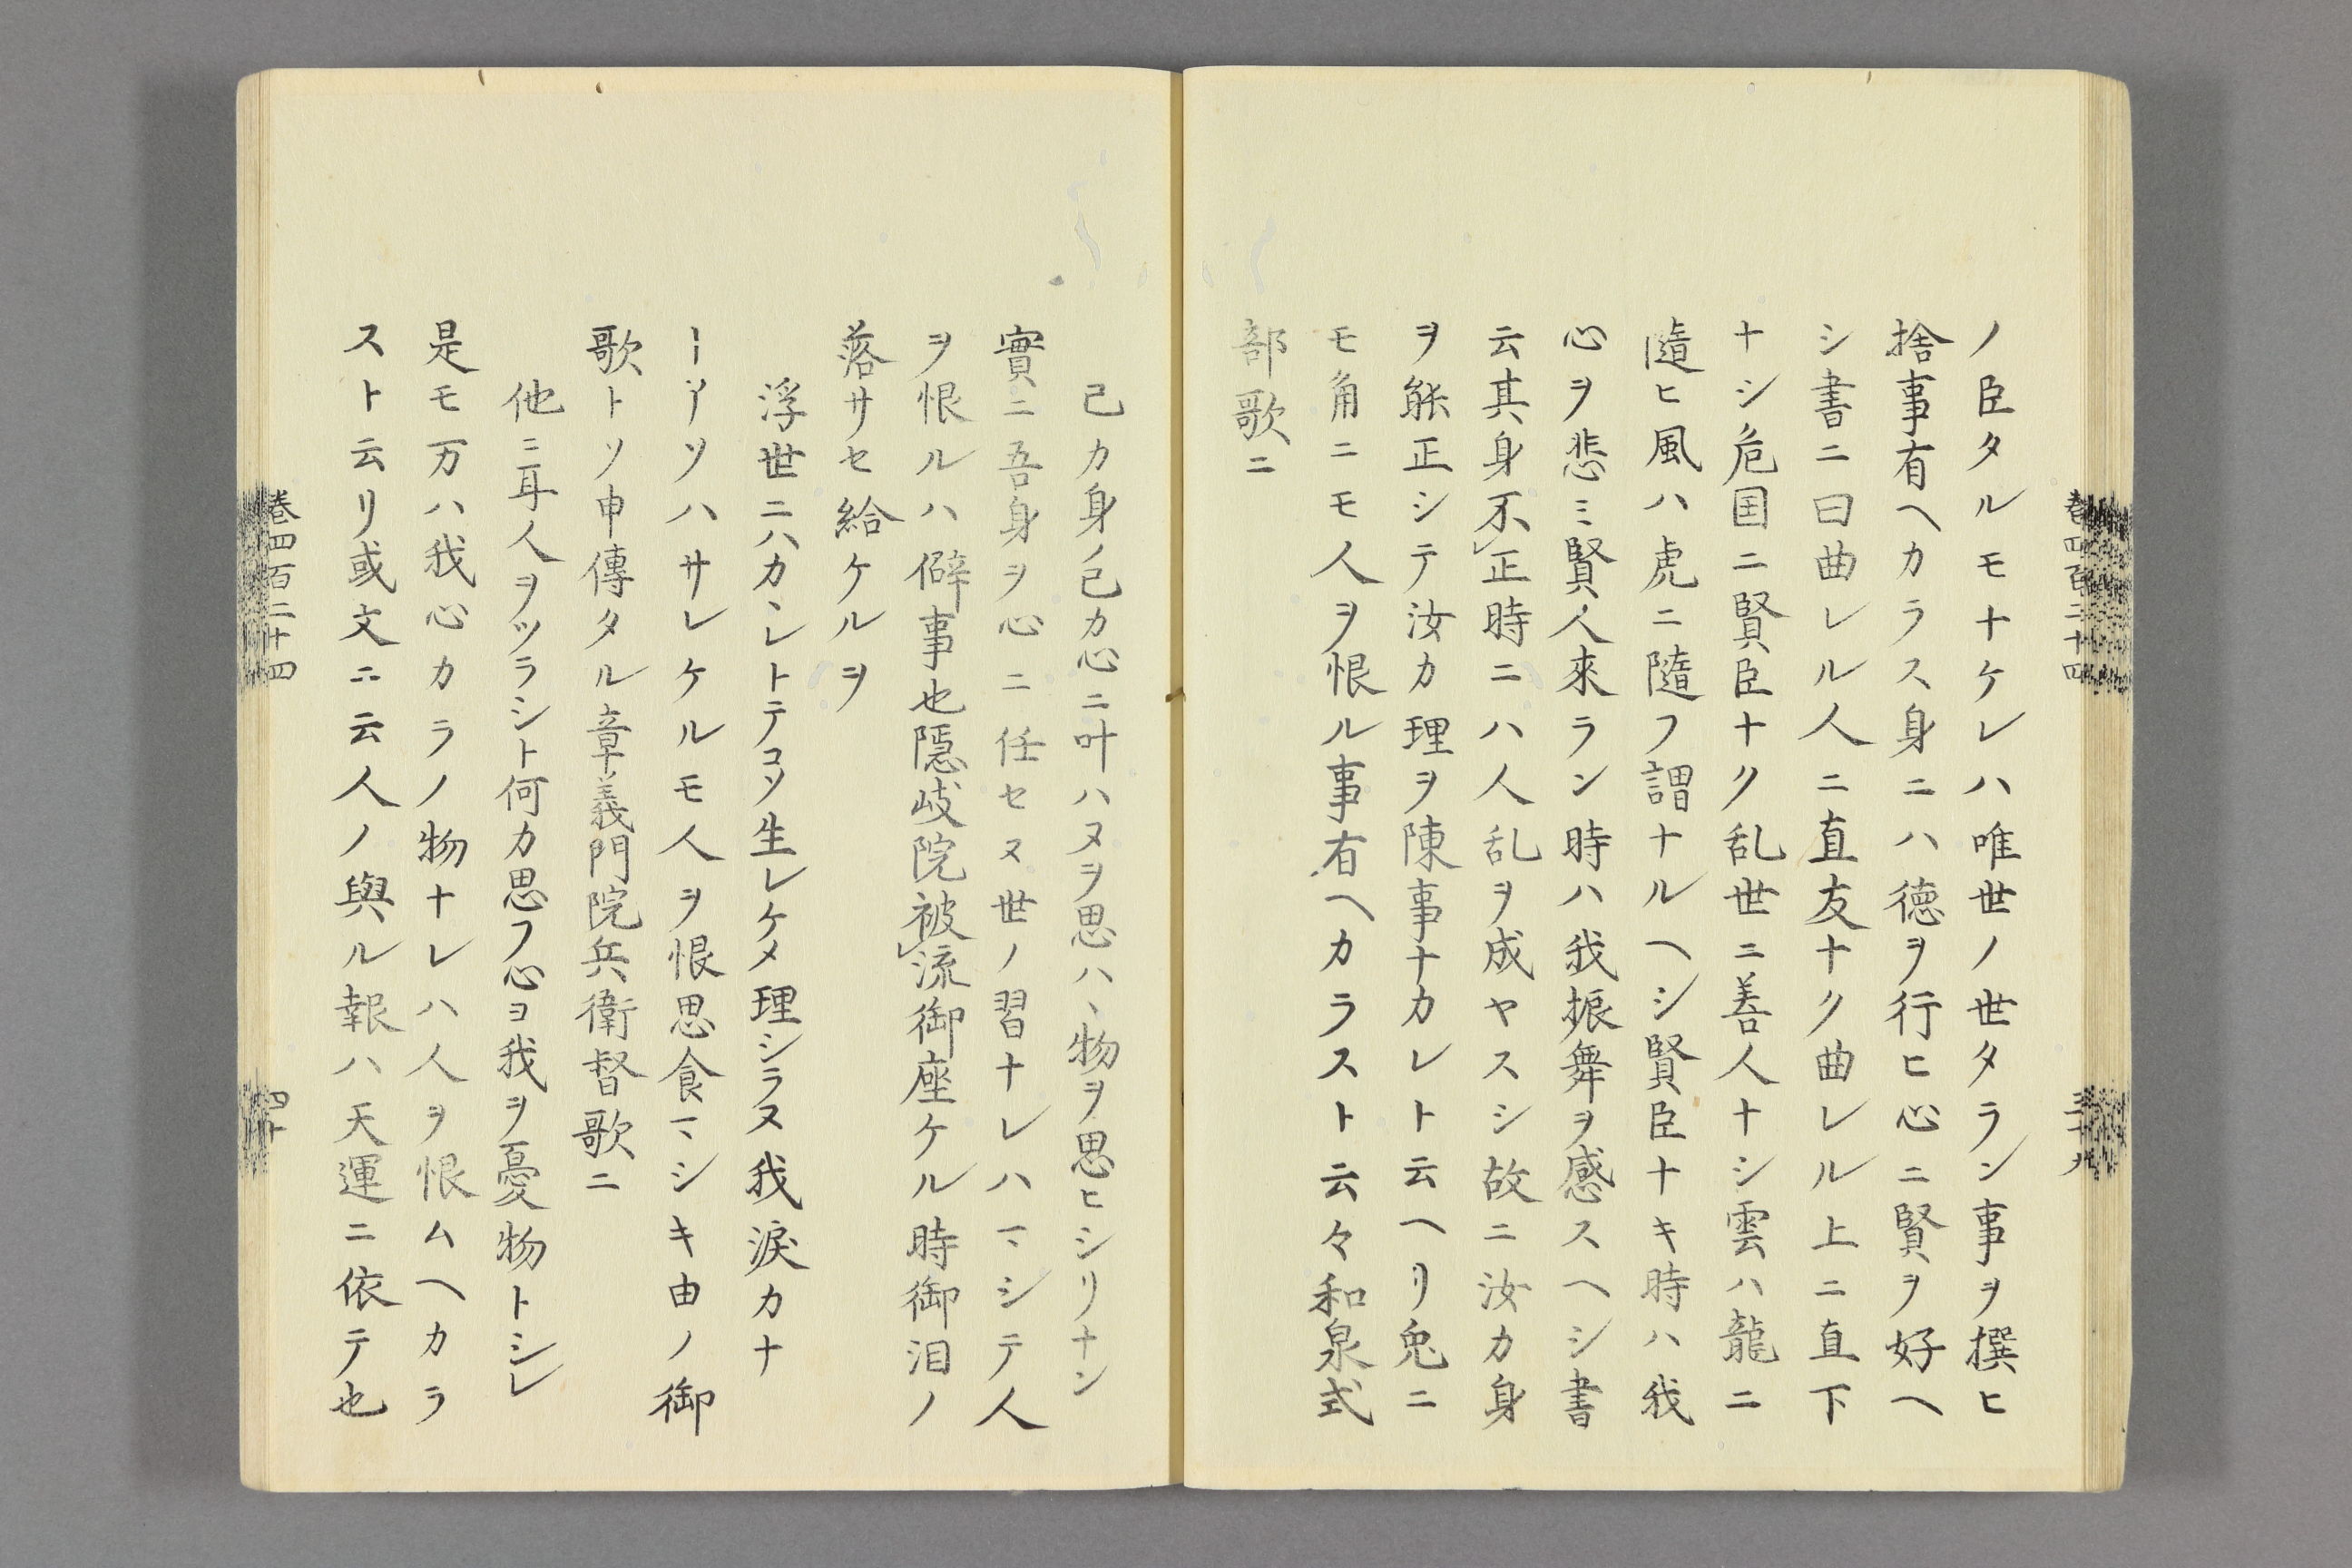 卷四百二十四
ノ臣タルモナケレハ唯世ノ世タラン事ヲ撰ヒ
捨事有ヘカラス身ニハ徳ヲ行ヒ心ニ賢ヲ好ヘ
シ書ニ曰曲レル人ニ直友ナク曲レル上ニ直下
ナシ危国ニ賢臣ナク乱世ニ善人ナシ雲ハ龍ニ
隨ヒ風ハ虎ニ隨フ謂ナルヘシ賢臣ナキ時ハ我
心ヲ悲ミ賢人來ラン時ハ我振舞ヲ感スヘシ書
云其身不㆑正時ニハ人乱ヲ成ヤスシ故ニ汝カ身
ヲ能正シテ汝カ理ヲ陳事ナカレト云ヘリ兎ニ
モ角ニモ人ヲ恨ル事有ヘカラスト云々和泉式
部歌ニ
己カ身ノ己カ心ニ叶ハヌヲ思ハヽ物ヲ思ヒシリナン
實ニ吾身ヲ心ニ任セヌ世ノ習ナレハマシテ人
ヲ恨ルハ僻事也隱岐院被㆑流御座ケル時御泪ノ
落サセ給ケルヲ
浮世ニハカヽレトテコソ生レケメ理シラヌ我淚カナ
ーアソハサレケルモ人ヲ恨思食マシキ由ノ御
歌トソ申傳タル章義門院兵衛督歌ニ
他ニ耳人ヲツラシト何カ思フ心ヨ我ヲ憂物トシレ
是モ万ハ我心カラノ物ナレハ人ヲ恨ムヘカラ
スト云リ或文ニ云人ノ與ル報ハ天運ニ依テ也
卷四百二十四
四十